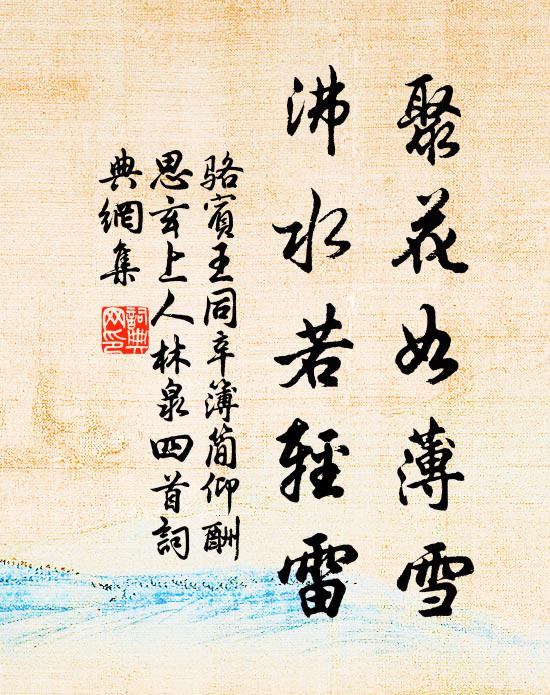 聚花如薄雪
沸水若輕雷
骆賓王同辛簿简仰酬
思玄上人林泉四首詞
典網集
詞典
网印